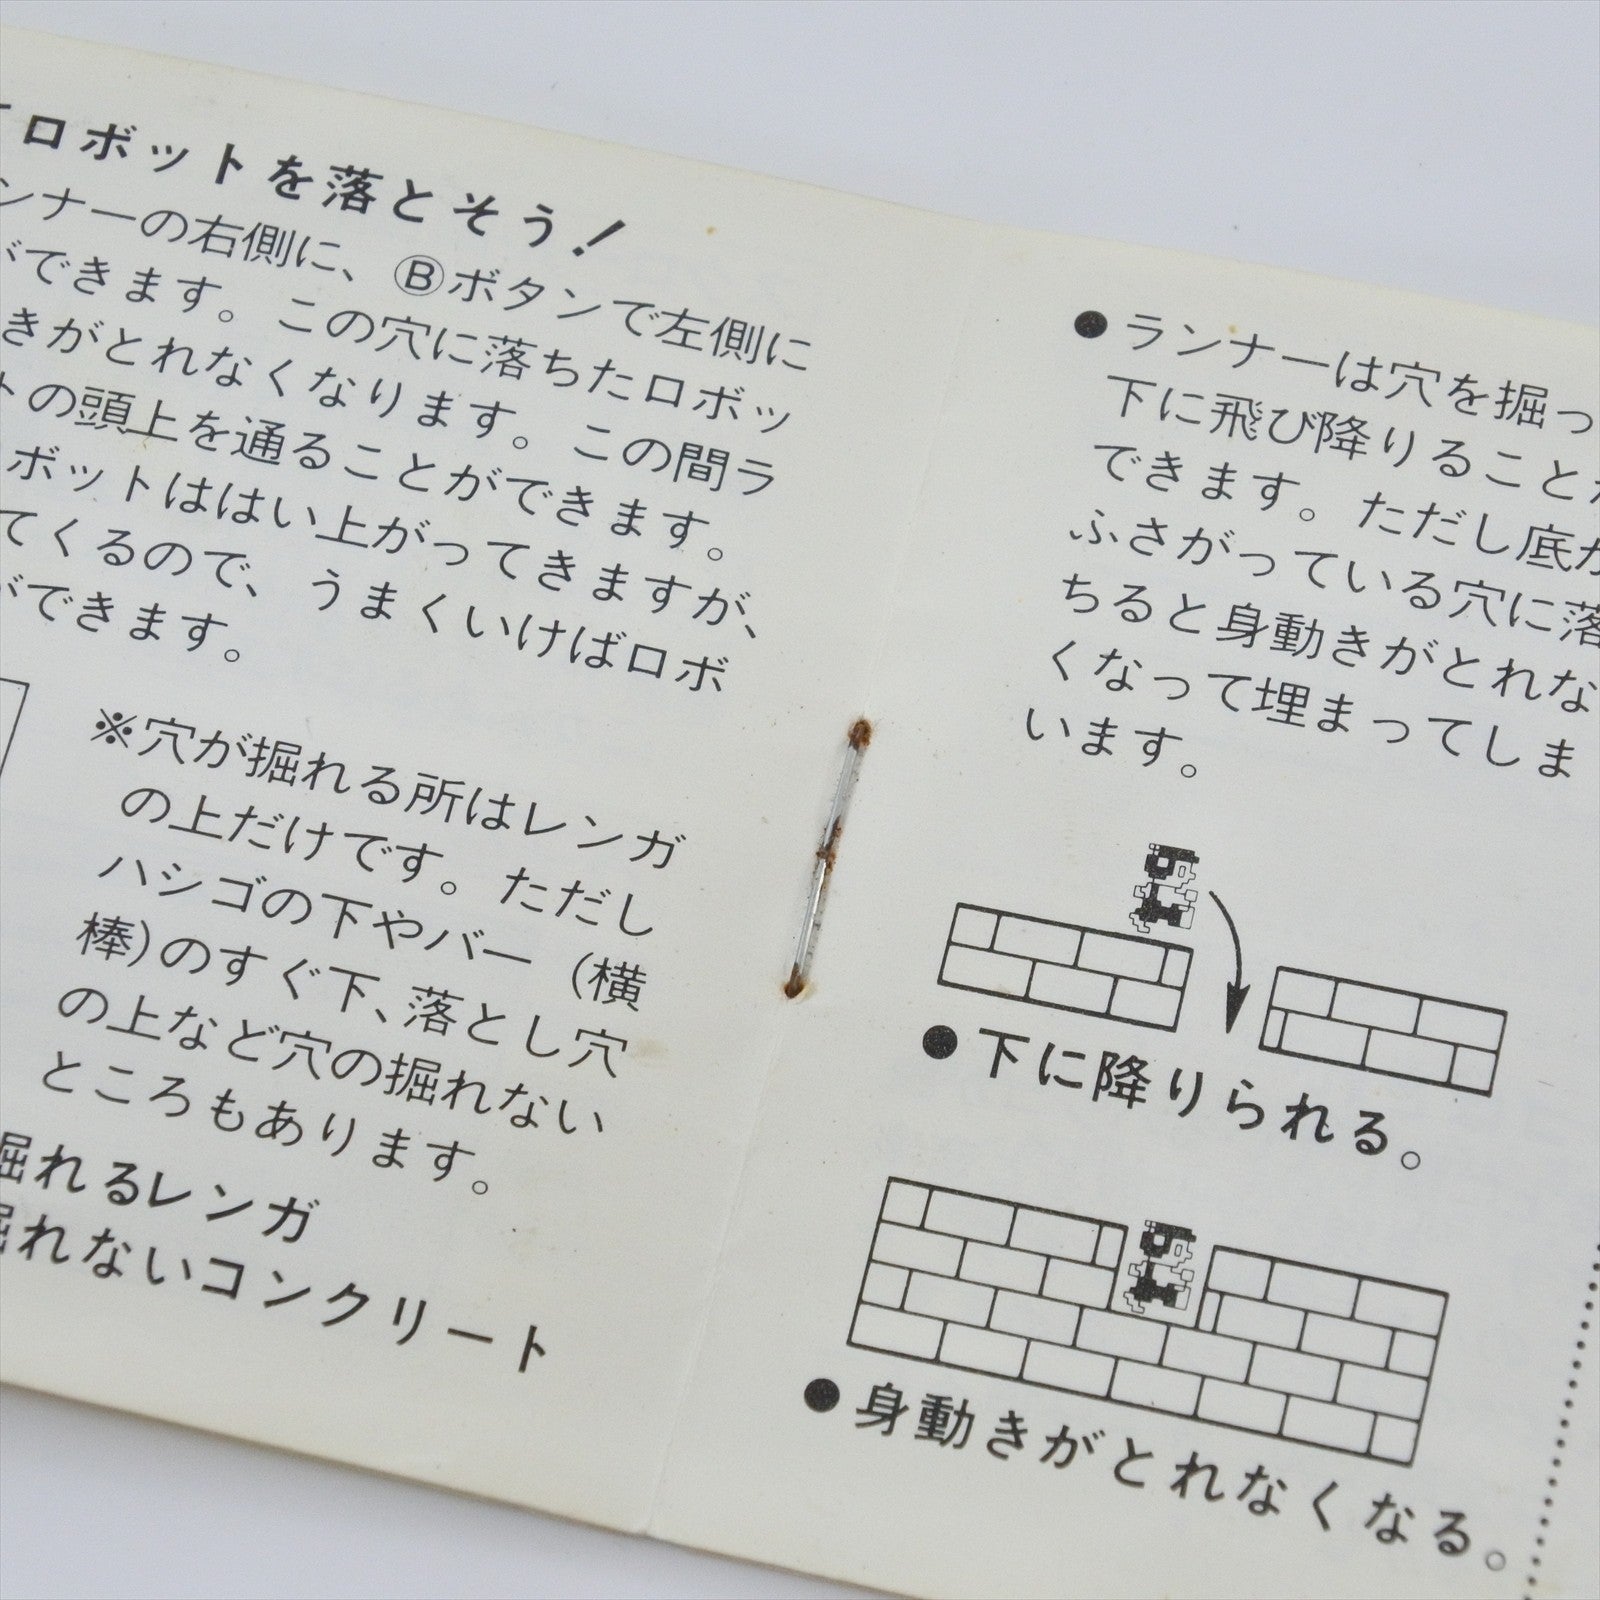 ロボットを落とそう！
ンナーの右側に、Ⓑボタンで左側に
ができます。この穴に落ちたロボッ
きがとれなくなります。この間ラ
トの頭上を通ることができます。
ボットははい上がってきますが、
てくるので、うまくいけばロボ
ができます。
※穴が掘れる所はレンガ
の上だけです。ただし
ハシゴの下やバー（横
棒）のすぐ下、落とし穴
の上など穴の掘れない
ところもあります。
掘れるレンガ
掘れないコンクリート
●ランナーは穴を掘っ
下に飛び降りることが
できます。ただし底が
ふさがっている穴に落
ちると身動きがとれな
くなって埋まってしま
います。
●下に降りられる。
●身動きがとれなくなる。